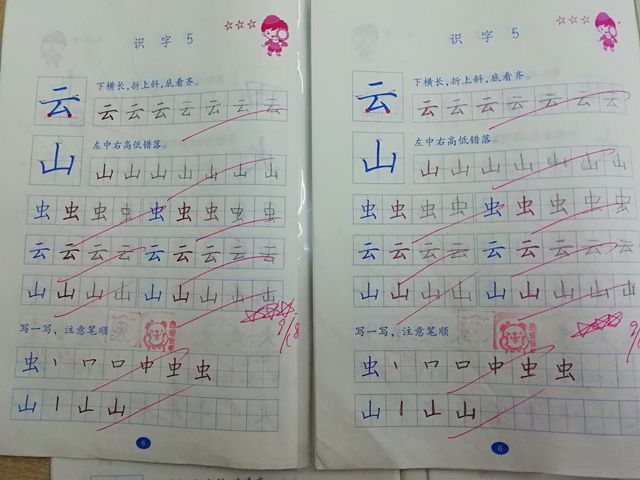 识字5
云 下横长,折上斜,底看齐。
云云云云云云云
山 左中右高低错落。
山山山山山山山
虫虫虫虫虫虫虫虫虫
云云云云云云云云云
山山山山山山山山山
写一写,注意笔顺
9/8
虫 丶 口 口 中 虫 虫
山 丨 山 山
6
识字5
云 下横长,折上斜,底看齐。
云云云云云云云
山 左中右高低错落。
山山山山山山山
虫虫虫虫虫虫虫虫虫
云云云云云云云云云
山山山山山山山山山
写一写,注意笔顺
虫 丶 口 口 中 虫 虫
山 丨 山 山
6